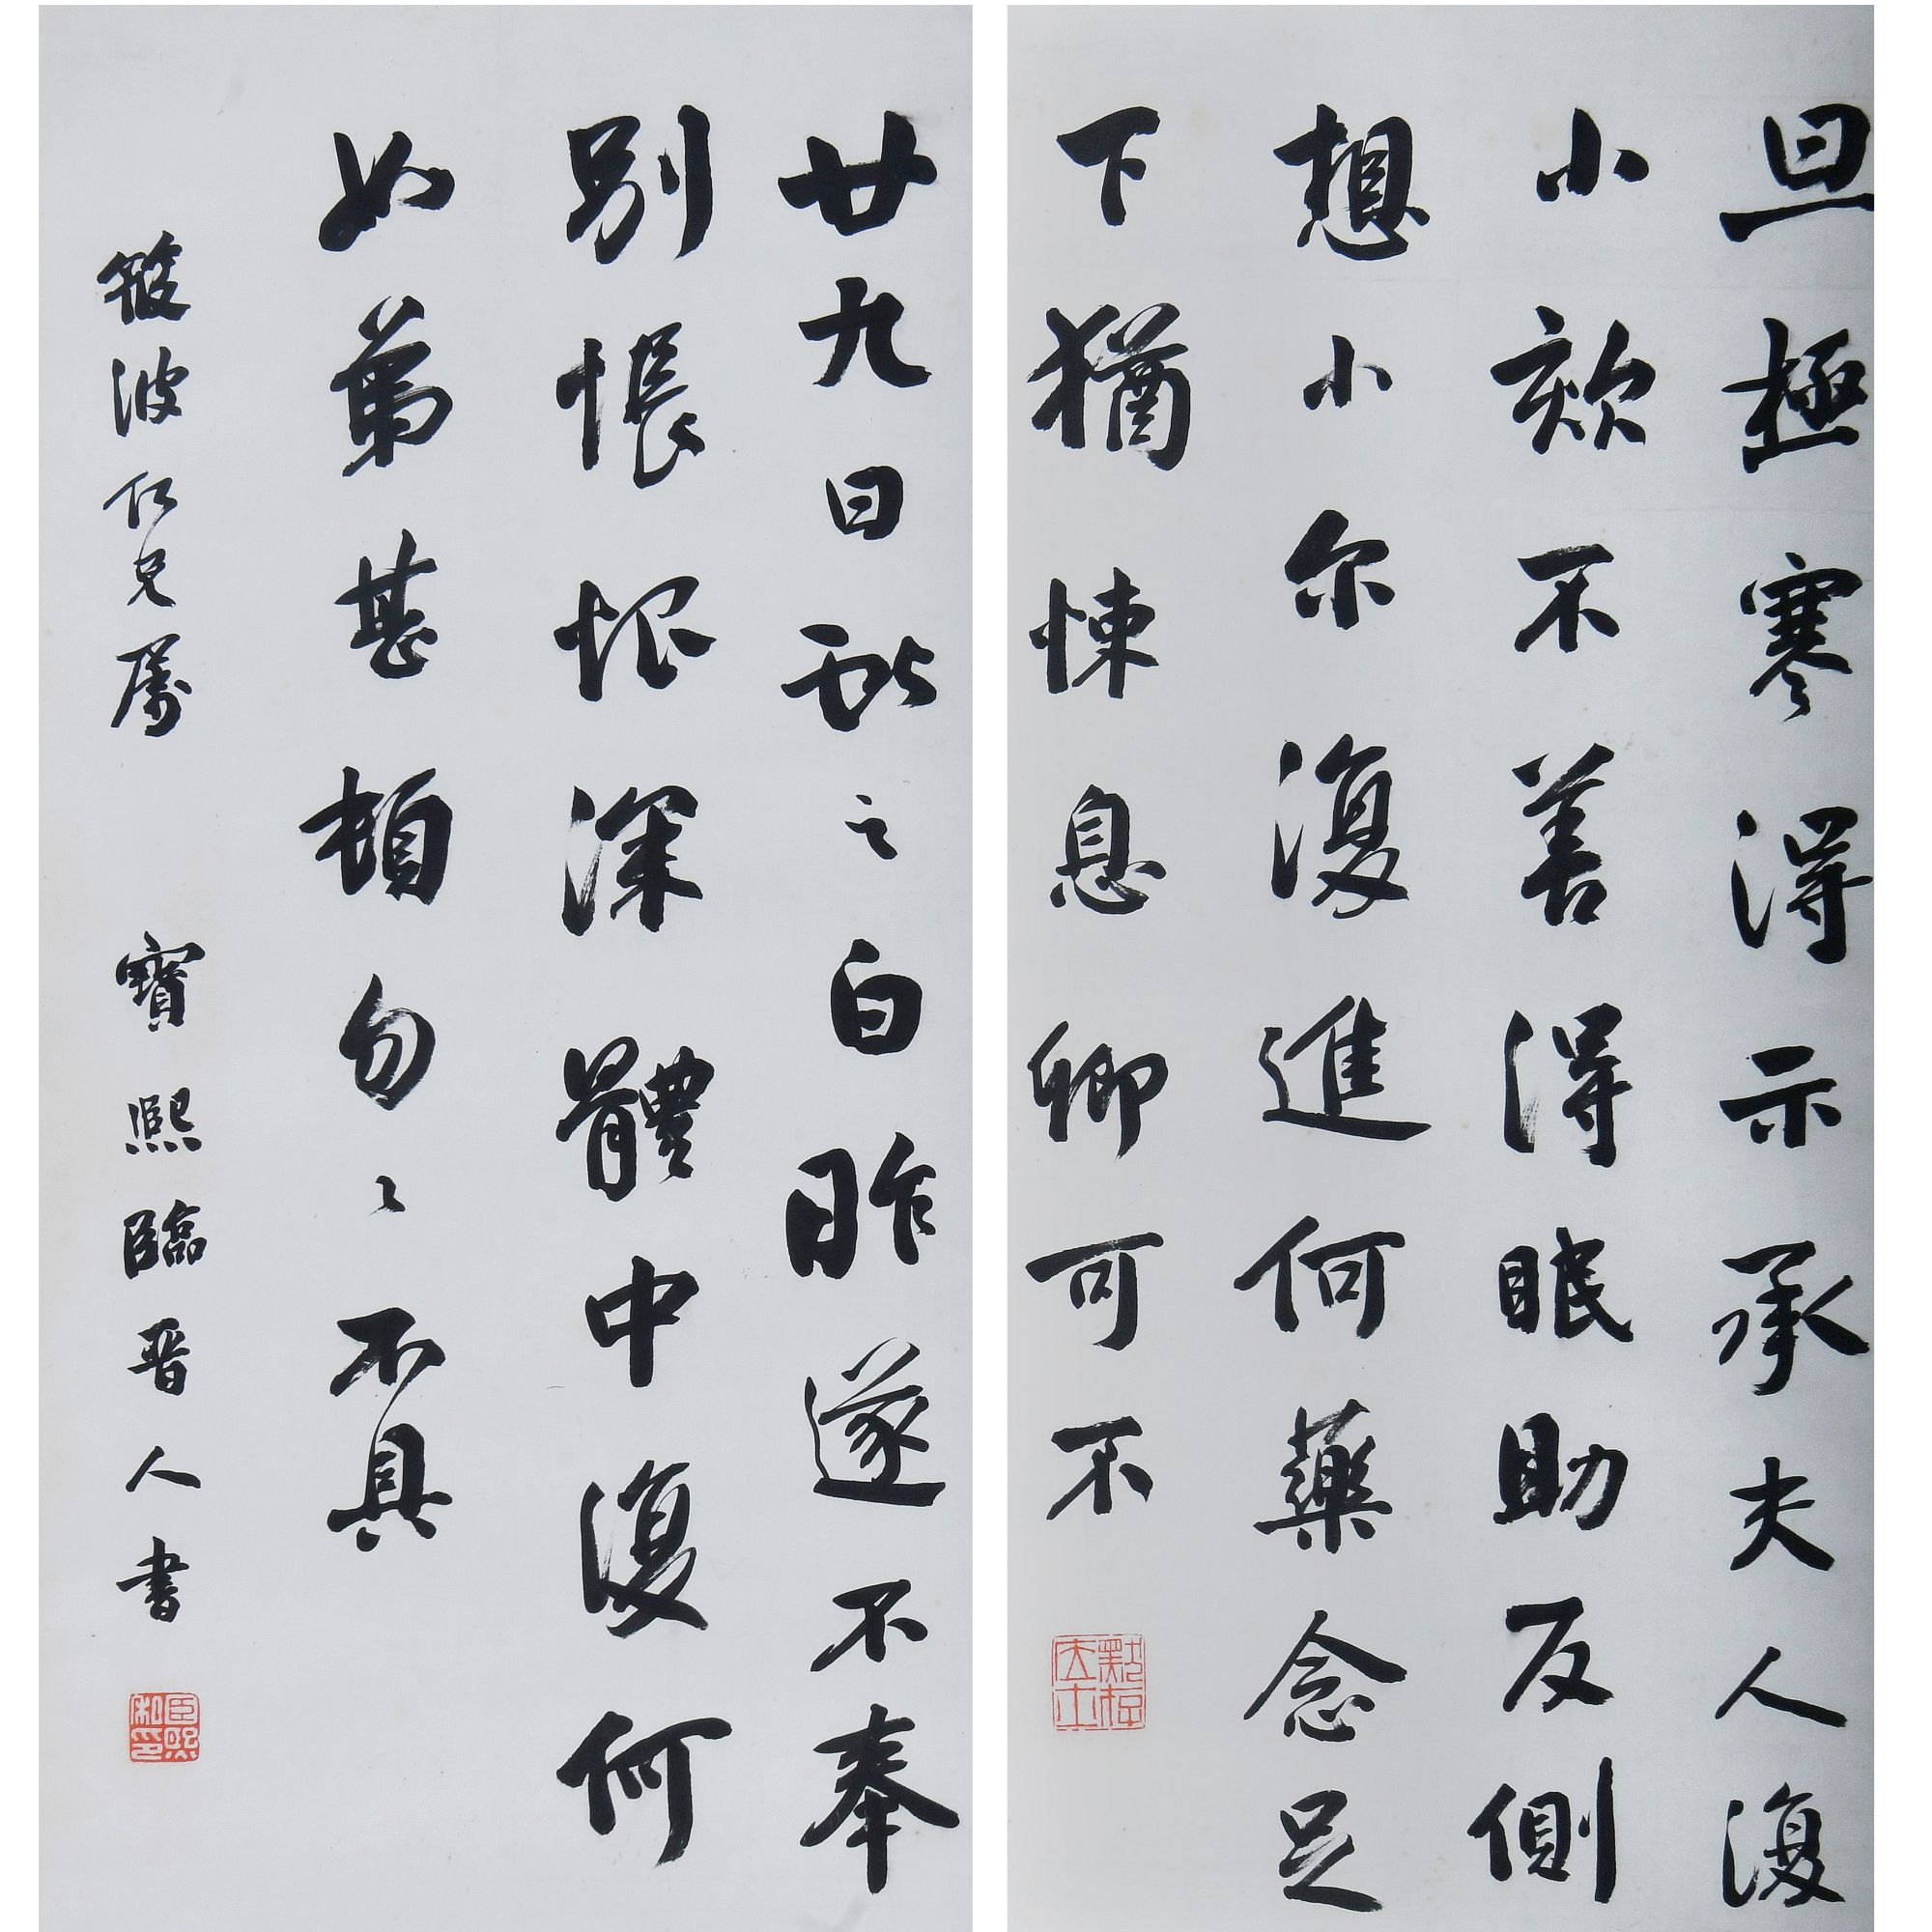 旦極寒得示承夫人復
小欬不善得眠助反側
想小尔復進何藥念足
下猶悚息卿可不
廿九日献之白昨遂不奉
別悵恨深體中復何
如弟甚頓勿〻不具
筱波仁兄属 寶熙臨晋人書
臣熙私印